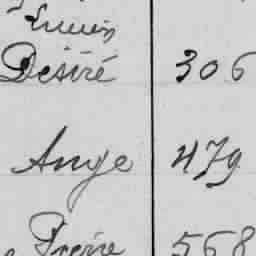 Désiré 306
Ange 479
Pierre 568